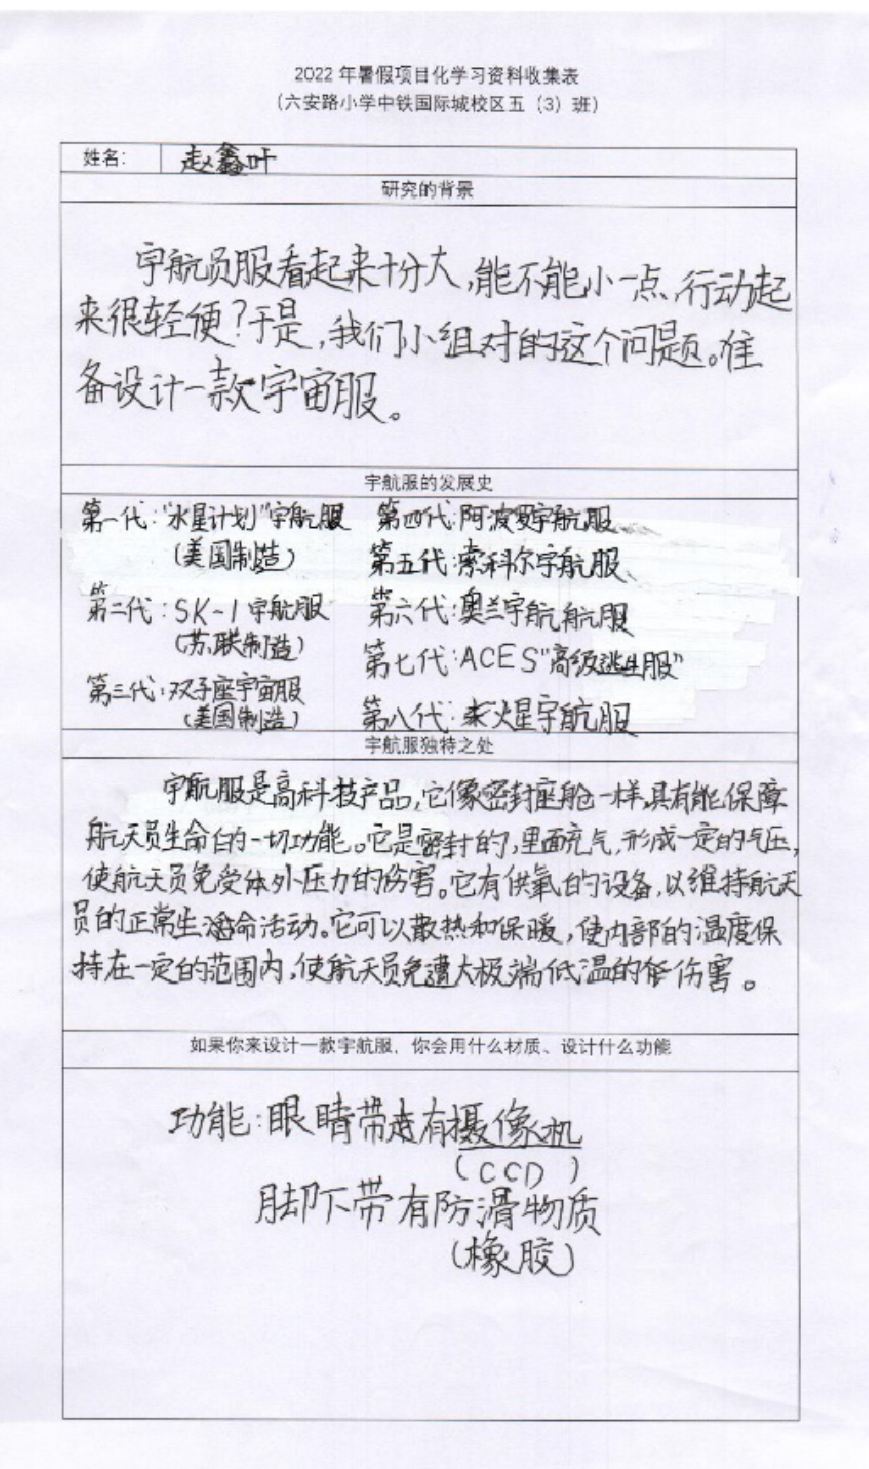 2022 年暑假项目化学习资料收集表
(六安路小学中铁国际城校区五（3）班)
姓名： 赵鑫叶
研究的背景
宇航员服看起来十分大,能不能小一点、行动起
来很轻便?于是,我们小组对的这个问题。准
备设计一款宇宙服。
宇航服的发展史
第一代:"水星计划"宇航服 第四代:阿波罗宇航服
(美国制造) 第五代:索科尔宇航服
第二代:SK-1宇航服 第六代:奥兰宇航航服
(苏联制造)
第七代:ACES"高级逃生服"
第三代:双子座宇宙服
(美国制造) 第八代:来火星宇航服
宇航服独特之处
宇航服是高科技产品,它像密封座舱一样,具有能保障
航天员生命的一切功能。它是密封的,里面充气,形成一定的气压,
使航天员免受体外压力的伤害。它有供氧的设备,以维持航天
员的正常生命活动。它可以散热和保暖,使内部的温度保
持在一定的范围内,使航天员免遭太极端低温的伤害。
如果你来设计一款宇航服，你会用什么材质、设计什么功能
功能:眼睛带有摄像机
(CCD)
脚下带有防滑物质
(橡胶)